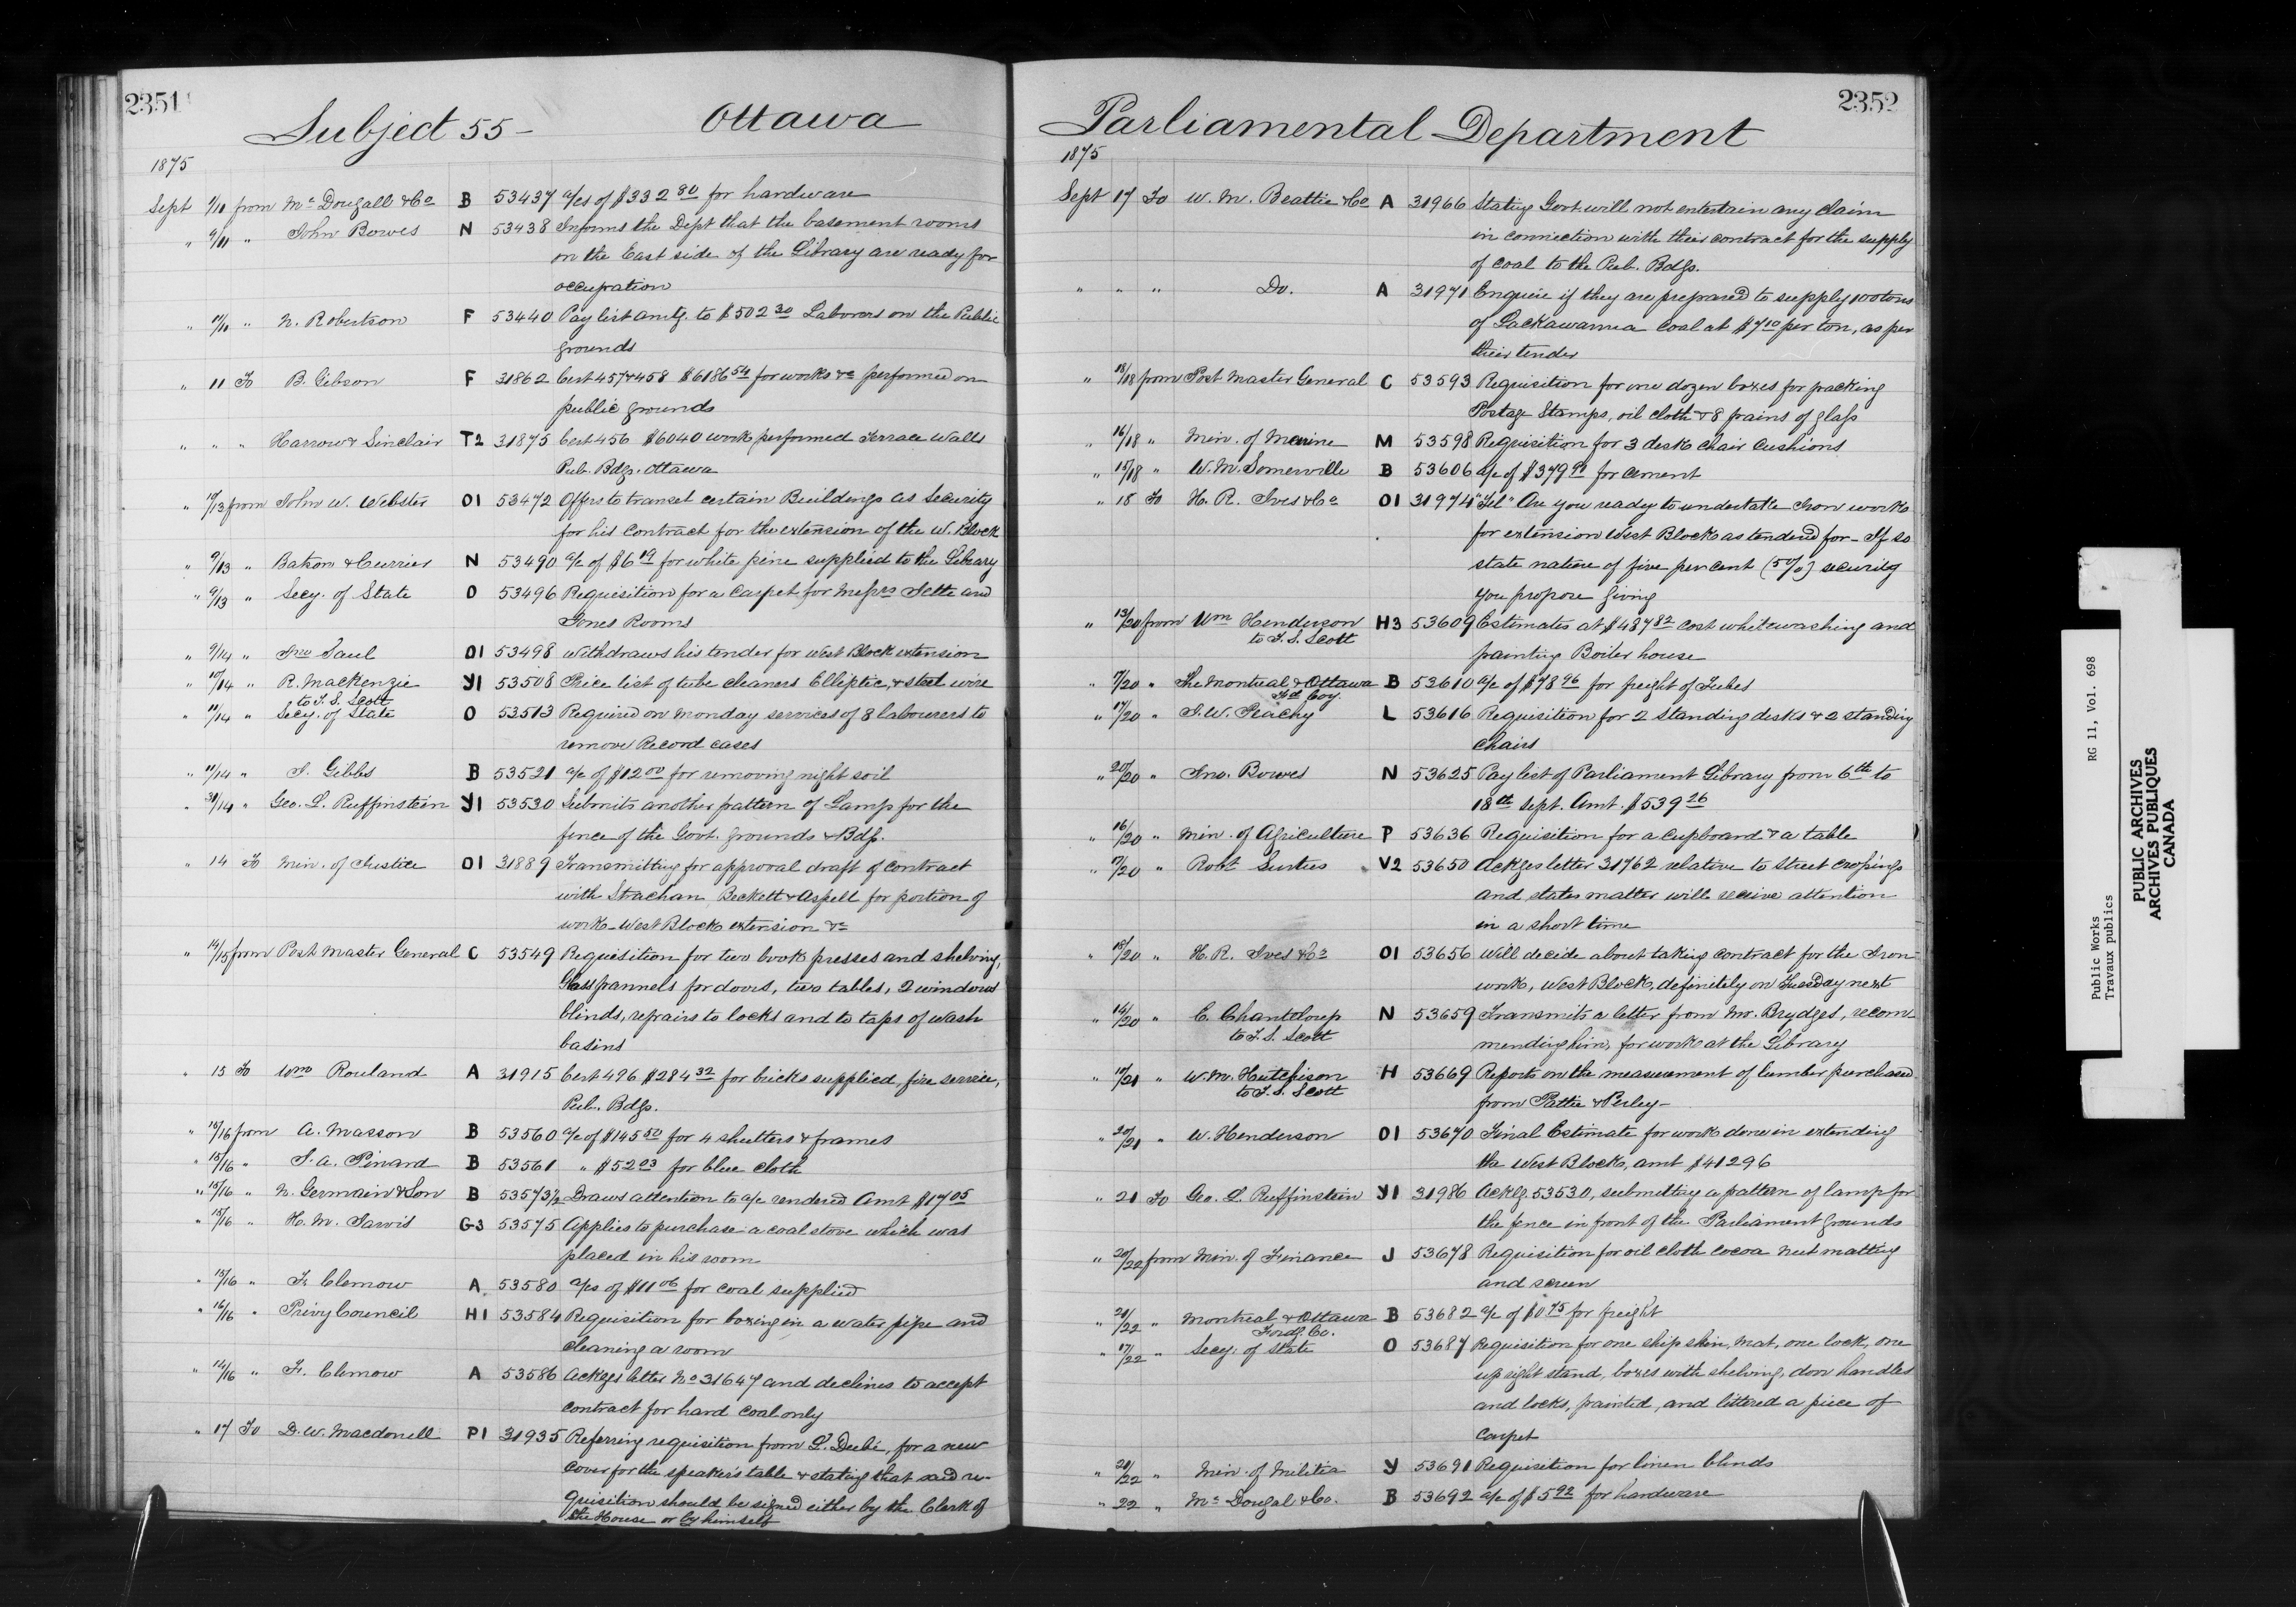 2351
Subject 55 - Ottawa
1875
Sept 9/11 from Mc Dougall & Co B 53437 a/cs of $332 80 for hardware
" 9/11 " John Bowes N 53438 Informs the Dept that the basement rooms
on the East side of the Library are ready for
occupation
" 10/11 " N. Robertson F 53440 Pay list amtg. to $502 30 Laborers on the Public
grounds
" 11 To B. Gibson F 31862 Cert 457 & 458 $6186 54 for works &c performed on
public grounds
" " " Harrow & Sinclair T2 31875 Cert 456 $6040 work performed Terrace Walls
Pub. Bdgs. Ottawa
" 10/13 from John W. Webster O1 53472 Offers to transet certain Buildings as Security
for his contract for the extension of the W. Block
" 9/13 " Batson & Currier N 53490 a/c of $6 19 for white pine supplied to the Library
" 9/13 " Secy. of State O 53496 Requisition for a Carpet for Messrs Tette and
Jones Rooms
" 9/14 " Jno Saul O1 53498 Withdraws his tender for West Block extension
" 10/14 " R. Mackenzie Y1 53508 Price list of tube cleaners Elliptic, & steel wire
to T. S. Scott
" 11/14 " Secy. of State O 53513 Required on Monday services of 8 labourers to
remove Record cases
" 11/14 " J. Gibbs B 53521 a/c of $12 00 for removing night soil
" 31/14 " Geo. L. Ruffinstein Y1 53530 Submits another pattern of Lamp for the
fence of the Govt. grounds & Bdg.
" 14 To Min. of Justice O1 31889 Transmitting for approval draft of contract
with Strachan, Beckett & Aspell for portion of
work - West Block extension &c
" 14/15 from Post Master General C 53549 Requisition for two book presses and shelving,
Glass pannels for doors, two tables, 2 windows
blinds, repairs to locks and to taps of wash
basins
" 15 To Wm Rouland A 31915 Cert 496 $284 32 for bricks supplied, fire service,
Pub. Bdgs.
" 15/16 from A. Masson B 53560 a/c of $145 50 for 4 shutters & frames
" 15/16 " J. A. Pinard B 53561 " $52 03 for blue cloth
" 15/16 " N. Germain & Son B 53573½ Draws attention to a/c rendered Amt $17 05
" 15/16 " H. M. Jarvis G3 53575 Applies to purchase a coal stove which was
placed in his room
" 15/16 " F. Clemow A 53580 a/cs of $11 06 for coal supplied
" 16/16 " Privy Council H1 53584 Requisition for boxing in a water pipe and
cleaning a room
" 14/16 " F. Clemow A 53586 Ackges letter No 31647 and declines to accept
contract for hard coal only
" 17 To D. W. Macdonell P1 31935 Referring requisition from L. Dubé, for a new
cover for the speaker's table & stating that said re-
quisition should be signed either by the Clerk of
the House or by himself
2352
Parliamental Department
1875
Sept 17 To W. M. Beattie & Co A 31966 Stating Govt will not entertain any claim
in connection with their contract for the supply
of coal to the Pub. Bdgs.
" " " Do. A 31971 Enquire if they are prepared to supply 100 tons
of Lackawanna coal at $7 10 per ton, as per
their tender
" 18/18 from Post Master General C 53593 Requisition for one dozen boxes for packing
Postage Stamps, oil cloth & 8 pains of glass
" 16/18 " Min. of Marine M 53598 Requisition for 3 desk chair cushions
" 15/18 " W. M. Somerville B 53606 a/c of $379 91 for cement
" 18 To H. R. Ives & Co O1 31974 "Tel" Are you ready to undertake Iron work
for extension West Block as tendered for - If so
state nature of five per cent (5%) security
you propose giving
" 13/20 from Wm Henderson H3 53609 Estimates at $487 82 cost whitewashing and
to T. S. Scott
painting Boiler house
" 7/20 " The Montreal & Ottawa B 53610 a/c of $78 96 for freight of Tubes
Fd. Coy.
" 17/20 " J. W. Peachy L 53616 Requisition for 2 standing desks & 2 standing
chairs
" 20/20 " Jno. Bowes N 53625 Pay list of Parliament Library from 6th to
18th Sept. Amt. $539 26
" 16/20 " Min. of Agriculture P 53636 Requisition for a cupboard & a table
" 17/20 " Robt Surtees V2 53650 Ackges letter 31762 relative to street crossings
and states matter will receive attention
in a short time
" 18/20 " H. R. Ives & Co O1 53656 Will decide about taking contract for the Iron-
work, West Block, definitely on Tuesday next
" 14/20 " E. Chanteloup N 53659 Transmits a letter from Mr. Brydges, recom-
to T. S. Scott
mending him, for work at the Library
" 17/21 " W. M. Hutchison H 53669 Reports on the measurement of lumber purchased
to T. S. Scott
from Pattie & Perley -
" 20/21 " W. Henderson O1 53670 Final Estimate for work done in extending
the West Block, amt $41296
" 21 To Geo. L. Ruffinstein Y1 31986 Ackg. 53530, submitting a pattern of lamp for
the fence in front of the Parliament grounds
" 20/22 from Min. of Finance J 53678 Requisition for oil cloth cocoa nut matting
and screen
" 21/22 " Montreal & Ottawa B 53682 a/c of $0 75 for freight
Fordg. Co.
" 17/22 " Secy. of State O 53687 Requisition for one ship skin, mat, one lock, one
up right stand, boxes with shelving, door handles
and locks, painted, and littered a piece of
Carpet
" 21/22 " Min. of Militia Y 53691 Requisition for linen blinds
" 22 " Mc Dougal & Co. B 53692 a/c of $5 92 for hardware
Public Works RG 11, Vol. 698
Travaux publics
PUBLIC ARCHIVES
ARCHIVES PUBLIQUES
CANADA